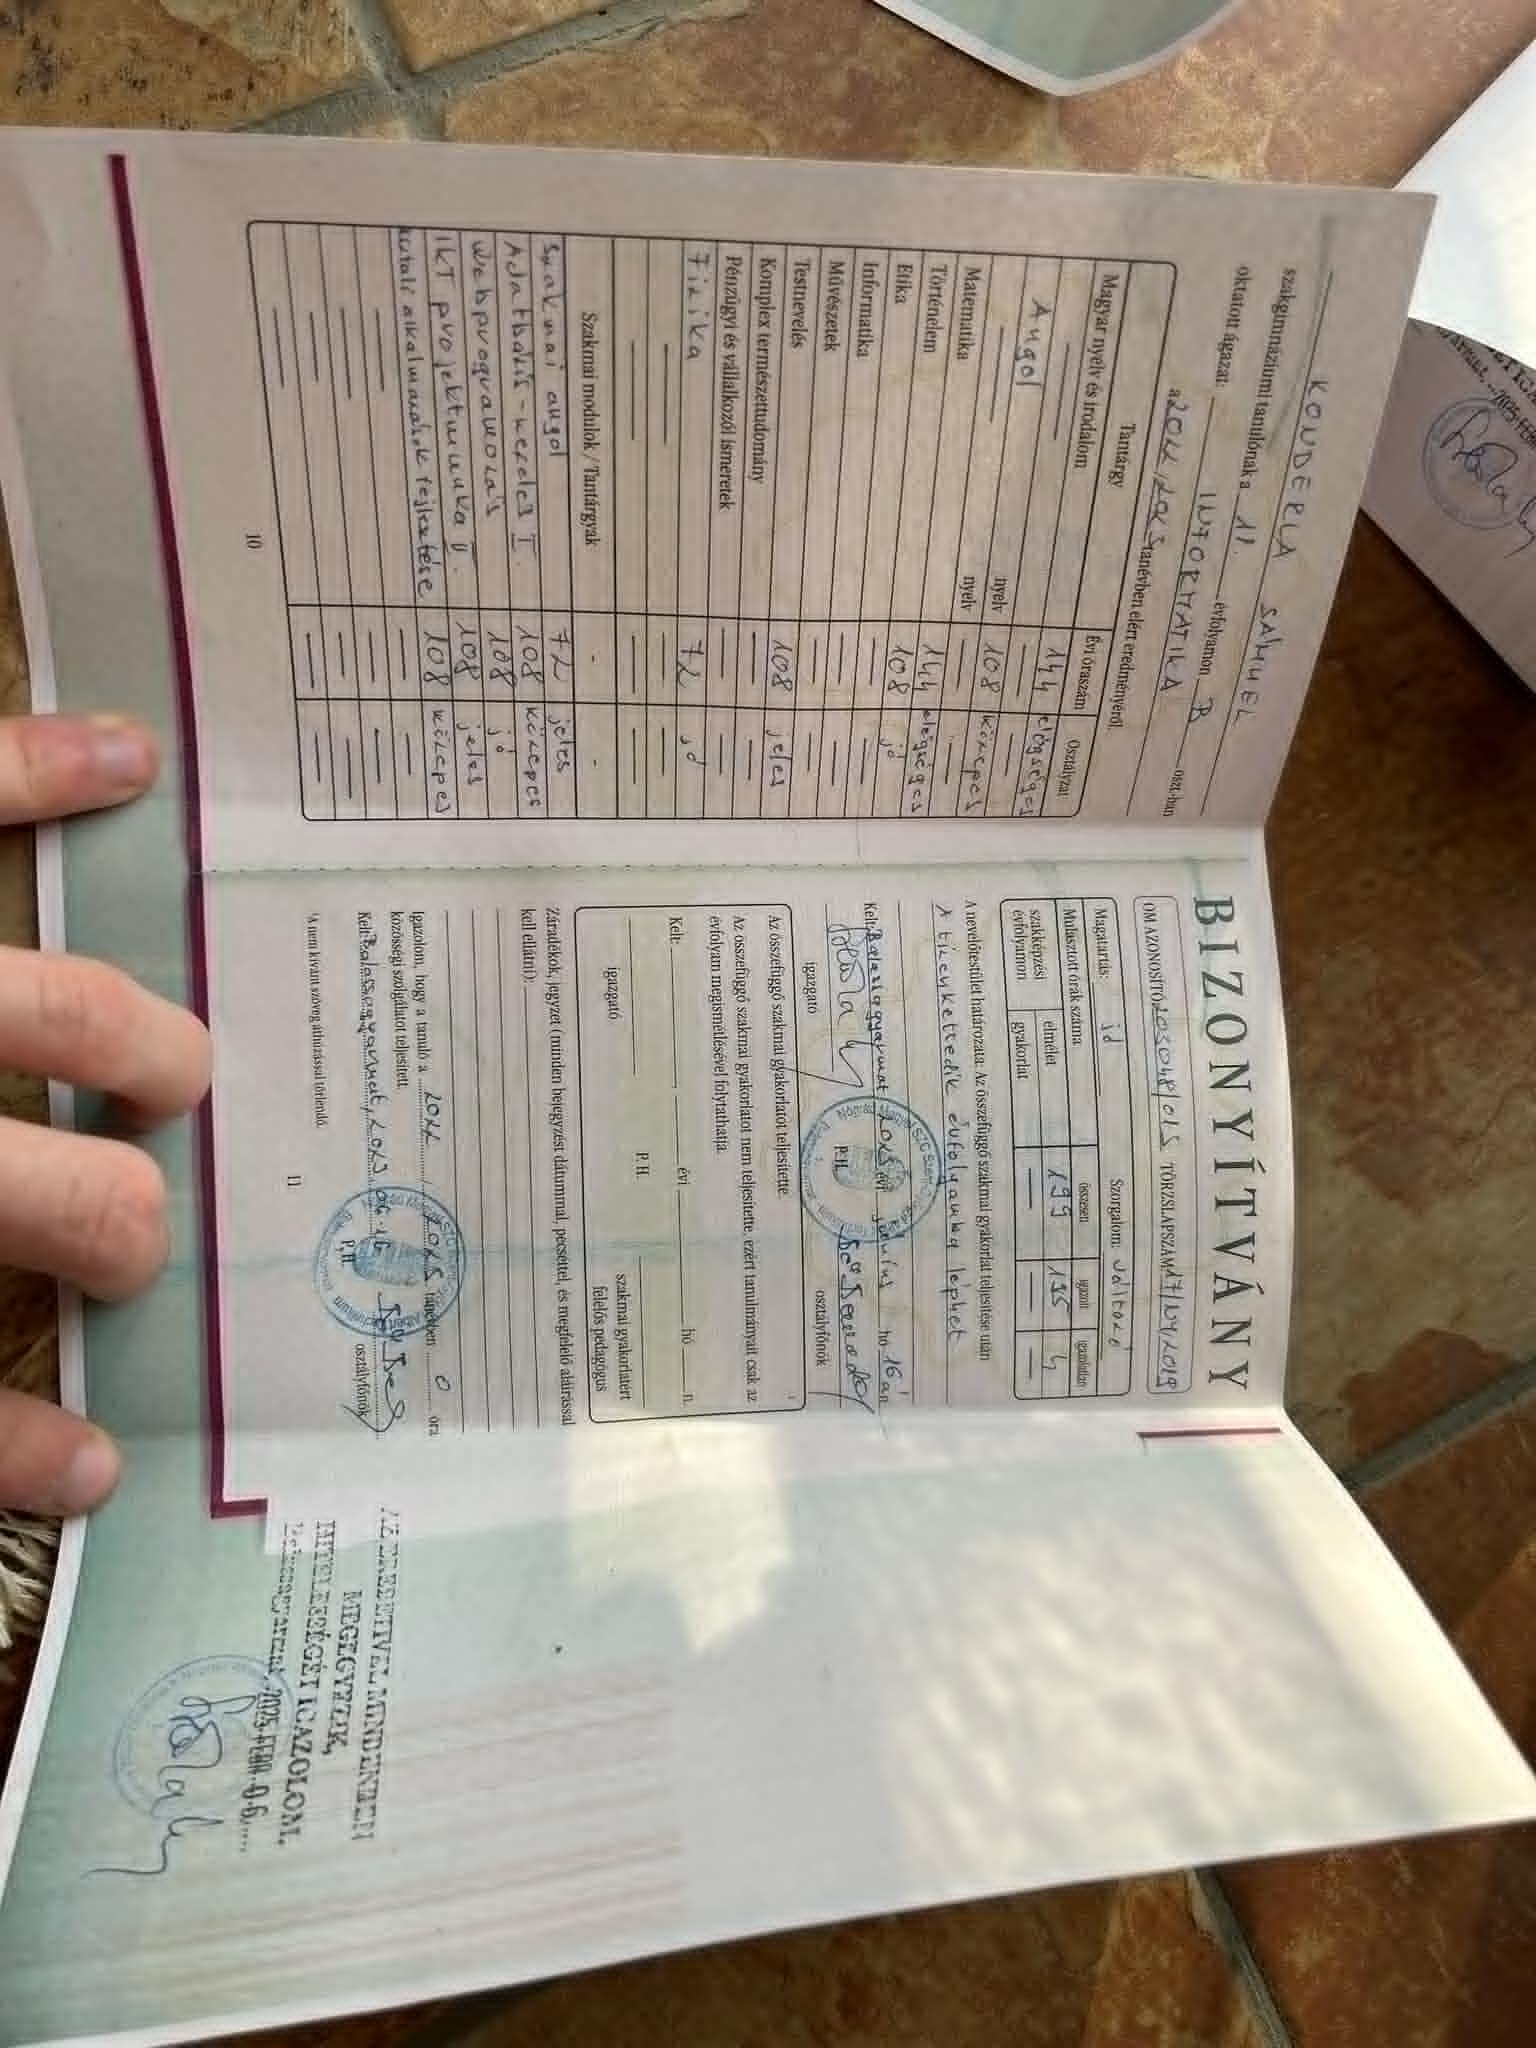 KONDERLA SÁMUEL
szakgimnáziumi tanulónak a 11. évfolyamon B oszt.-ban
oktatott ágazat: INFORMATIKA
a 2022/2023 tanévben elért eredményéről.
Tantárgy Évi óraszám Osztályzat
Magyar nyelv és irodalom 144 elégséges
— nyelv — —
Angol nyelv 108 közepes
— nyelv — —
Matematika 144 elégséges
Történelem 108 jó
Etika — —
Informatika — —
Művészetek — —
Testnevelés 108 jeles
Komplex természettudomány — —
Pénzügyi és vállalkozói ismeretek — —
Fizika 72 jó
— — —
— — —
Szakmai modulok / Tantárgyak - -
Szakmai angol 72 jeles
Adatbázis-kezelés I. 108 közepes
Webprogramozás 108 jó
IKT projektmunka II. 108 jeles
alkalmazások fejlesztése 108 közepes
— — —
— — —
— — —
— — —
10
BIZONYÍTVÁNY
OM AZONOSÍTÓ 203048/015 TÖRZSLAPSZÁM 17/NY/2019
Magatartás: jó Szorgalom: változó
Mulasztott órák száma összesen igazolt igazolatlan
szakképzési évfolyamon elmélet 199 195 4
gyakorlat — — —
A nevelőtestület határozata: Az összefüggő szakmai gyakorlat teljesítése után
A tizenkettedik évfolyamba léphet
Kelt: Balassagyarmat 2023 évi június hó 16 án
igazgató P. H. osztályfőnök
Az összefüggő szakmai gyakorlatot teljesítette.
Az összefüggő szakmai gyakorlatot nem teljesítette, ezért tanulmányait csak az
évfolyam megismétlésével folytathatja.
Kelt: évi hó n.
igazgató P. H. szakmai gyakorlatért
felelős pedagógus
Záradékok, jegyzet (minden bejegyzést dátummal, pecséttel, és megfelelő aláírással
kell ellátni):
Igazolom, hogy a tanuló a 2022 2023 tanévben 0 óra
közösségi szolgálatot teljesített.
Kelt: Balassagyarmat, 2023 06. 16 P. H. osztályfőnök
A nem kívánt szöveg áthúzással törlendő.
11
AZ EREDETIVEL MINDENBEN
MEGEGYEZIK,
HITELESSÉGÉT IGAZOLOM.
Balassagyarmat, 2025 FEBR. 0 6.